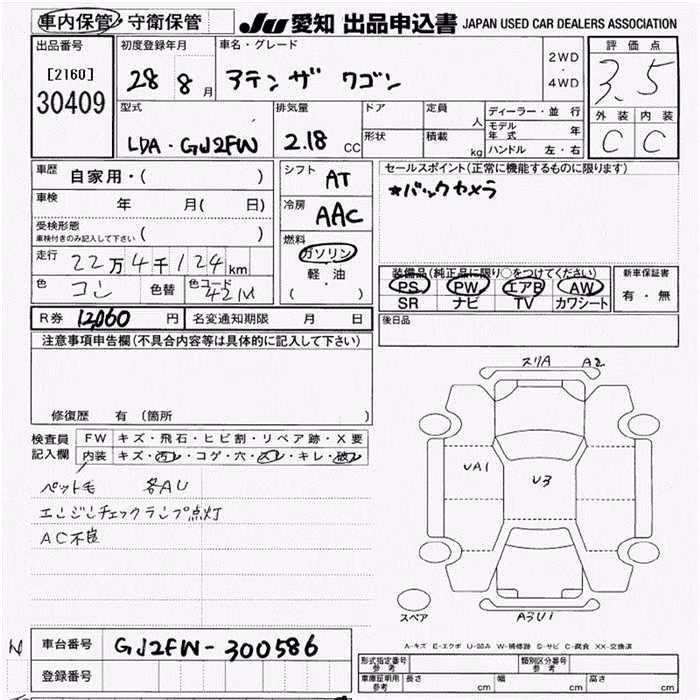 車内保管・守衛保管 JU 愛知 出品申込書 JAPAN USED CAR DEALERS ASSOCIATION
出品番号 初度登録年月 車名・グレード 評価点
[2160] 28 8月 アテンザ ワゴン 2WD・4WD 3.5
30409
型式 排気量 ドア 定員 人 ディーラー・並行 外装 内装
LDA・GJ2FW 2.18 CC 形状 積載 kg モデル年式 年 C C
ハンドル 左・右
車歴 自家用・( ) シフト AT セールスポイント(正常に機能するものに限ります)
車検 年 月( 日) 冷房 AAC *バックカメラ
受検形態 ( )
車検付きのみ記入して下さい
走行 22万4千124km 燃料 ガソリン 装備品(純正品に限り○をつけてください) 新車保証書
色 コン 色替 色コード 42M 軽油 PS PW エアB AW 有・無
( ) SR ナビ TV カワシート
R券 12,060円 名変通知期限 月 日 後日品
注意事項申告欄(不具合内容等は具体的に記入して下さい)
修復歴 有(箇所 )
スリA A2
検査員 FW キズ・飛石・ヒビ割・リペア跡・X要
記入欄 内装 キズ・汚レ・コゲ・穴・スレ・キレ・破レ
UA1 U3
ペット毛 各AU
エンジンチェックランプ点灯
AC不良
スペア A3U1
A-キズ E-エクボ U-凹み W-補修跡 S-サビ C-腐食 XX-交換済
車台番号 GJ2FW-300586
登録番号
形式指定番号 参考 類別区分番号 参考
車庫証明用 参考 長さ cm 幅 cm 高さ cm